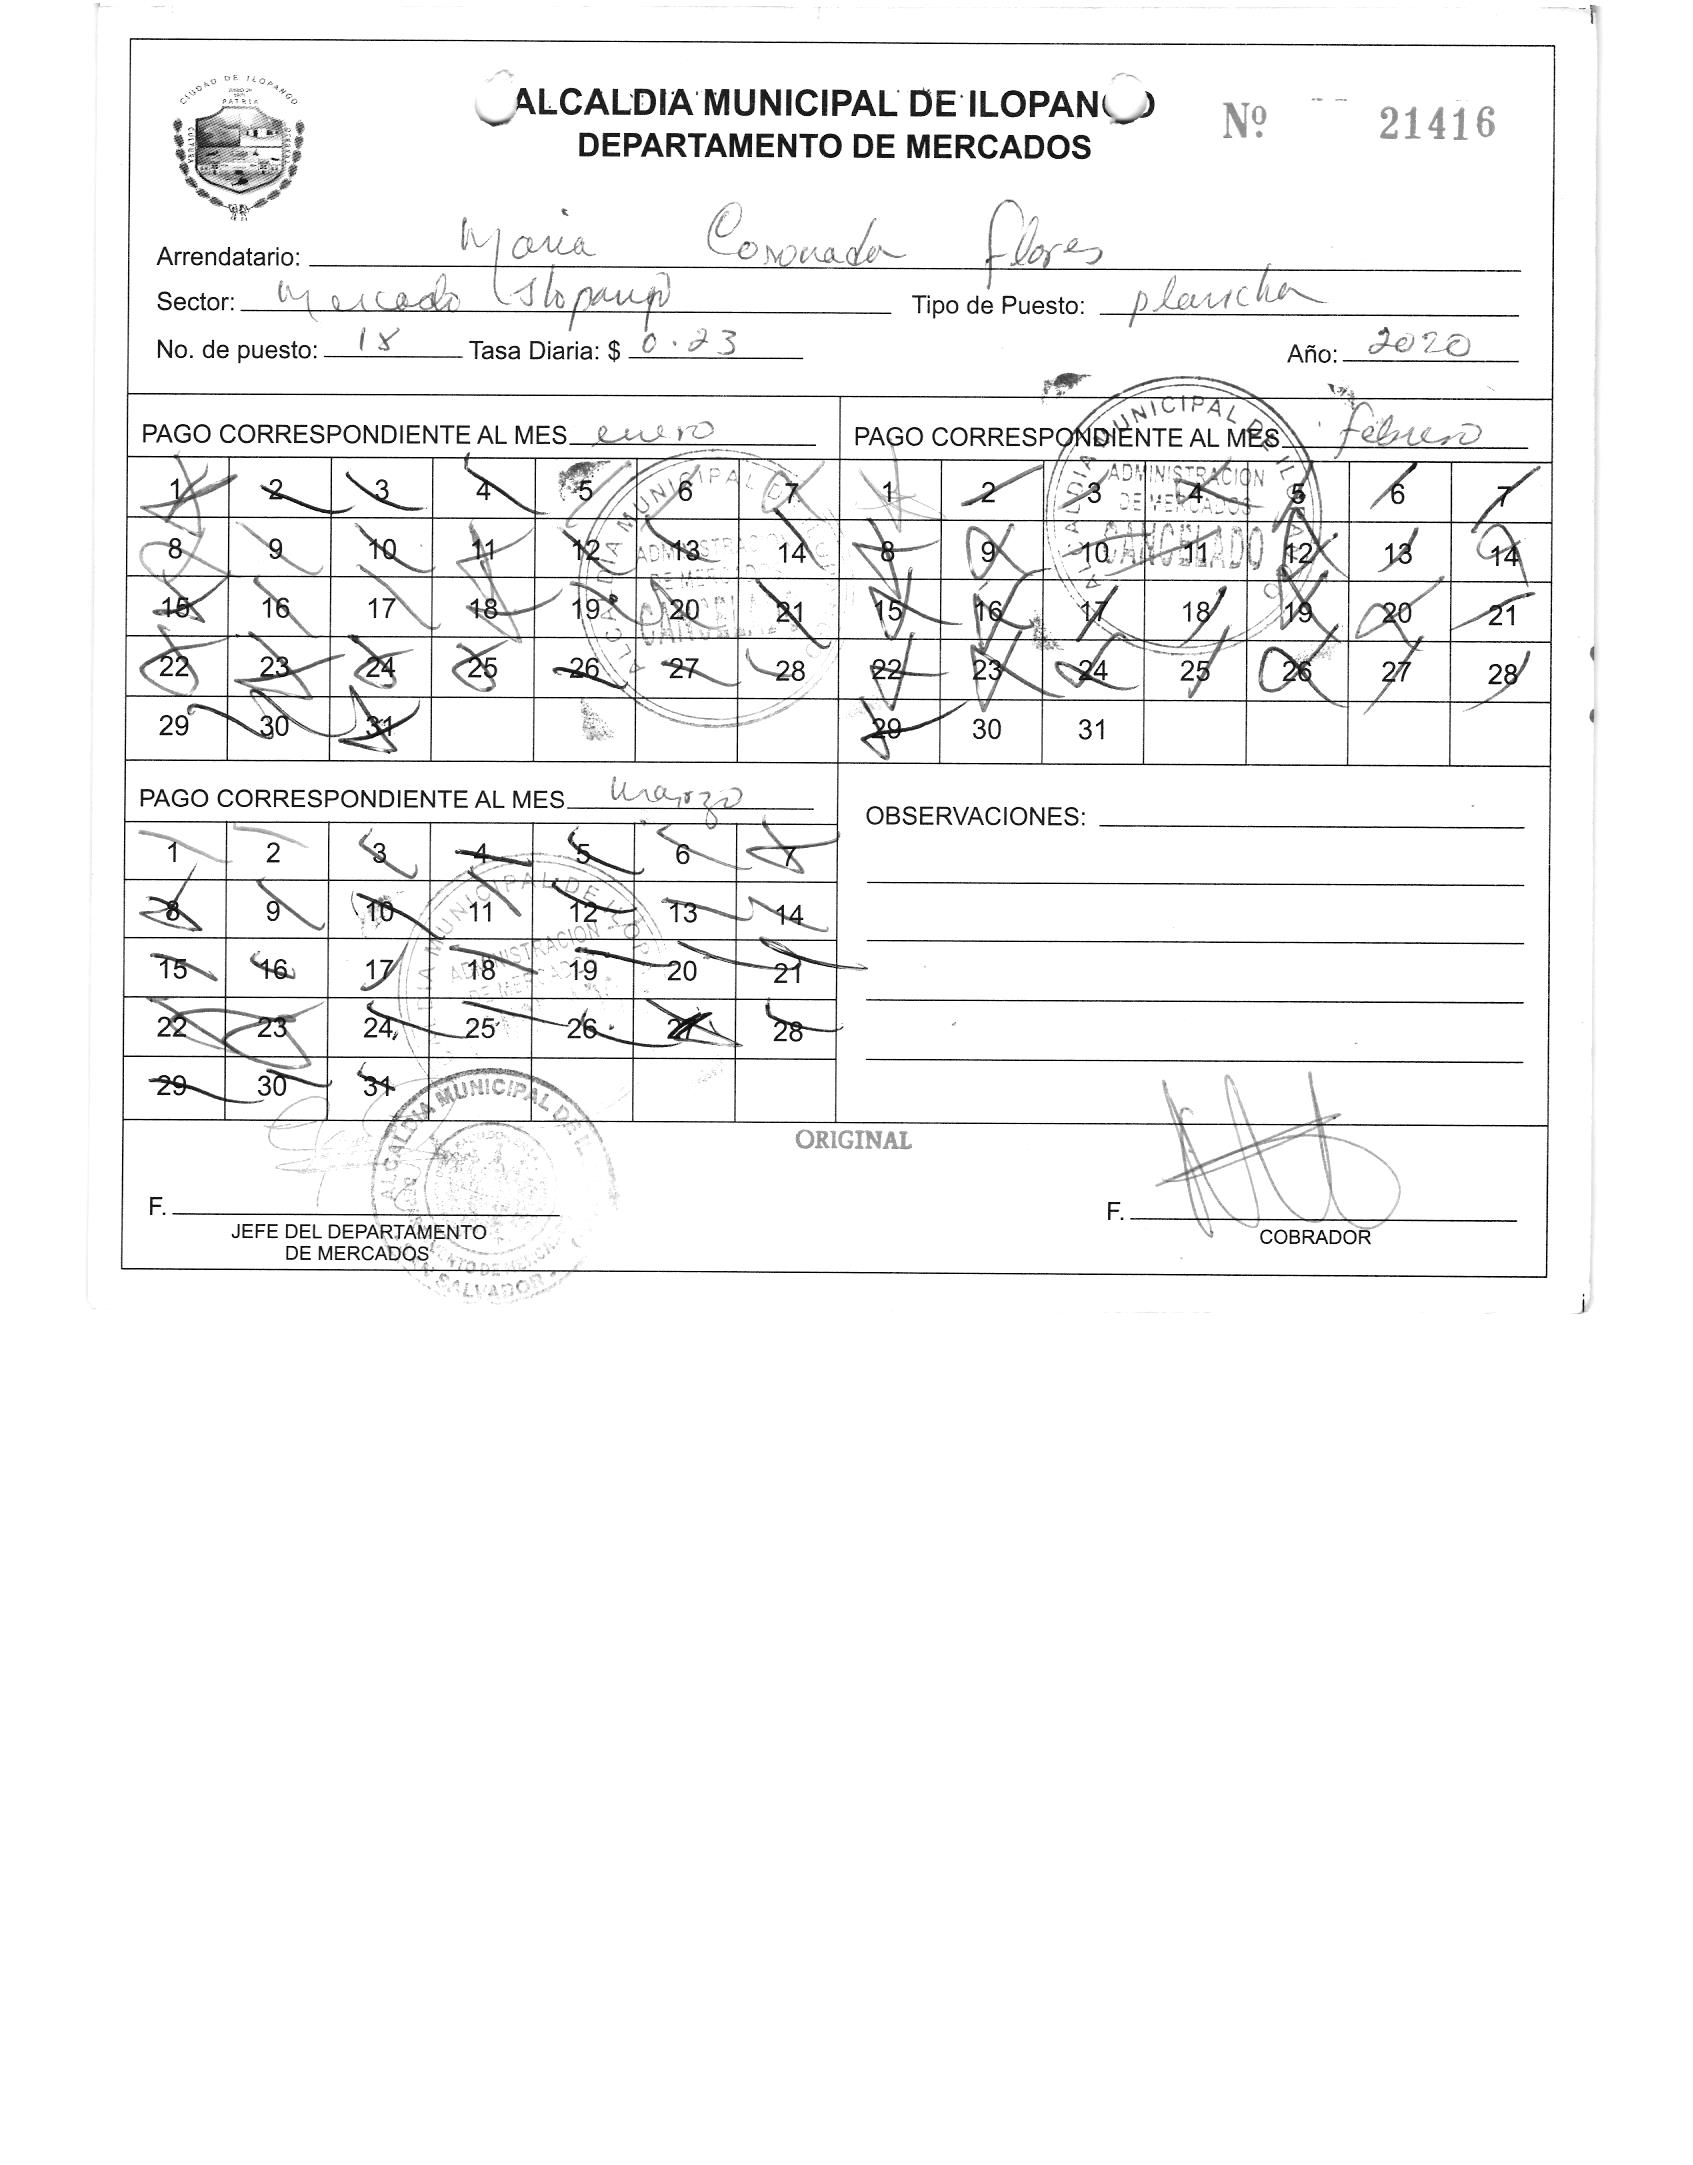 CIUDAD DE ILOPANGO
PATRIA
CULTURA
ALCALDIA MUNICIPAL DE ILOPANGO
Nº 21416
DEPARTAMENTO DE MERCADOS
Arrendatario: Maria Coronada Flores
Sector: Mercado Ilopango Tipo de Puesto: plancha
No. de puesto: 18 Tasa Diaria: $ 0.23 Año: 2020
PAGO CORRESPONDIENTE AL MES enero
1 2 3 4 5 6 7
8 9 10 11 12 13 14
15 16 17 18 19 20 21
22 23 24 25 26 27 28
29 30 31
ALCALDIA MUNICIPAL DE
ADMINISTRACION
DE MERCADOS
CANCELADO
PAGO CORRESPONDIENTE AL MES febrero
1 2 3 4 5 6 7
8 9 10 11 12 13 14
15 16 17 18 19 20 21
22 23 24 25 26 27 28
29 30 31
ALCALDIA MUNICIPAL DE ILOPANGO
ADMINISTRACION
DE MERCADOS
CANCELADO
PAGO CORRESPONDIENTE AL MES marzo
1 2 3 4 5 6 7
8 9 10 11 12 13 14
15 16 17 18 19 20 21
22 23 24 25 26 27 28
29 30 31
MUNICIPAL DE ILOP
ADMINISTRACION
DE MERCADOS
OBSERVACIONES:
ORIGINAL
F.
JEFE DEL DEPARTAMENTO
DE MERCADOS
ALCALDIA MUNICIPAL DE
SAN SALVADOR
F.
COBRADOR